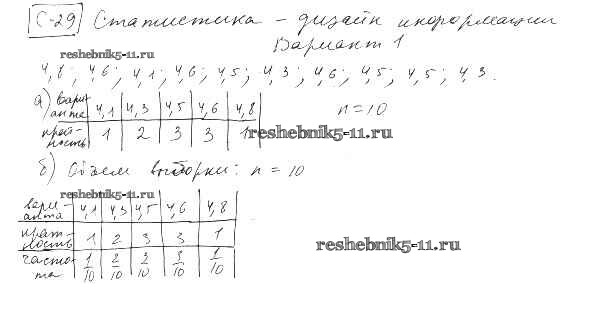 С-29 Статистика – дизайн информации
Вариант 1
reshebnik5-11.ru
4,8; 4,6; 4,1; 4,6; 4,5; 4,3; 4,6; 4,5; 4,5; 4,3.
а) вари- 4,1 4,3 4,5 4,6 4,8 n=10
анта
крат- 1 2 3 3 1
ность
reshebnik5-11.ru
б) Объем выборки: n = 10
reshebnik5-11.ru
вари- 4,1 4,3 4,5 4,6 4,8
анта
крат- 1 2 3 3 1
ность
reshebnik5-11.ru
часто- 1/10 2/10 3/10 3/10 1/10
та